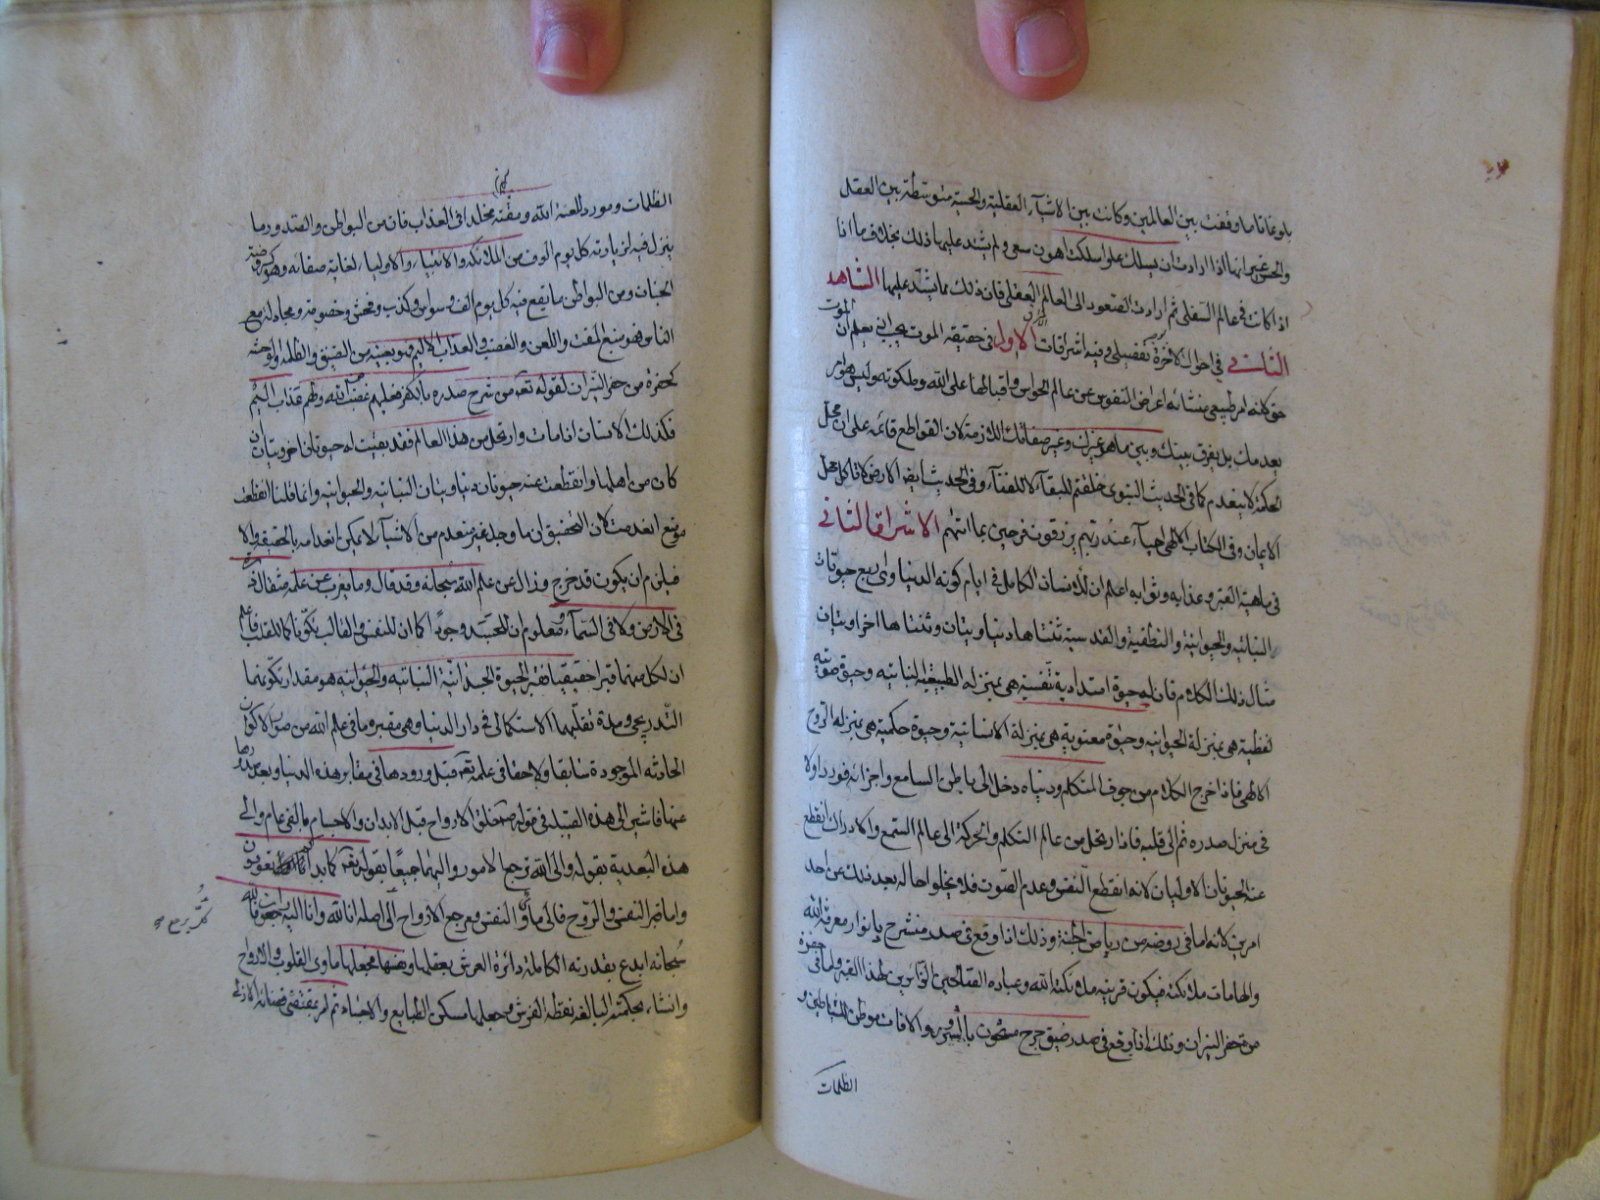 بلوغاتاما وقفت بين العالمين وكانت بين الاشياء العقلية والحسية متوسطة بين العقل
والحس غير انها اذا ارادت ان يسلك علوا سلكت اهون سعى ولم يشتد عليها ذلك بخلاف ما اذا
اذا كانت فى عالم السفلى ثم ارادت الصعود الى العالم العقلى فان ذلك مما يشتد عليها الشاهد
الثانى فى احوال الاخرة بتفصيلى وفيه اشراقات الاول فى حقيقة الموت يجب ان يعلم ان الموت
حق لانه امر طبيعى منشائه اعراض النفوس عن عالم الحواس واقبالها على الله وملكوته وليس هو امر
يعدمك بل يفرق بينك وبين ما هو غيرك وغير صفاتك اللازمة لان القواطع قائمه على ان محل
الحكمة لا ينعدم كما فى الحديث النبوى خلقتم للبقآء لا للفنآء وفى الحديث ايضا الارض لا تاكل محل
الايمان وفى الكتاب الالهى احيآء عند ربهم يرزقون فرحين بما اتهم الاشراق الثانى
فى ماهية القبر وعذابه وثوابه اعلم ان للانسان الكامل فى ايام كونه الدنياوى اربع حيوتات
النباتيه والحيوانية والنطقية والقدسية ثنتاها دنياويتان وثنتاها اخراويتان
مثال ذلك الكلام فان له حيوة امتدادية تنفسية هى بمنزله الطبيعية النباتيه وحيوة صوتيه
لفظية هى بمنزلة الحيوانيه وحيوة معنوية هى بمنزلة الانسانية وحيوة حكمية هى بمنزله الروح
الالهى فاذا خرج الكلام من جوف المتكلم ودنياه دخل الى باطن السامع واخراه فورد اولا
فى منزل صدره ثم الى قلبه فاذا ارتحل من عالم التكلم والحركة الى عالم السمع والادراك انقطع
عنه الحيوتان الاوليان لانه انقطع النفس وعدم الصوت فلا يخلوا حاله بعد ذلك عن احد
امرين لانه اما فى روضة من رياض الجنة وذلك اذا وقع فى صدر منشرح بانوار معرفة الله
والهامات ملائكته فيكون قرينه ملائكة الله وعباده الصالحين الزائرين لهذا القبر واما فى حفرة
من حفر النيران وذلك اذا وقع فى صدر ضيق حرج مشحون بالشرور والافات موطن للشياطين و
الظلمات
الظلمات ومورد للعنة الله ومقته مخلدا فى العذاب فان من البواطن والصدور ما
ينزل فيه لزيارته كل يوم الوف من الملائكة والانبياء والاولياء لغاية صفائه وهو كروضة
الجنان ومن البواطن ما يقع فيه كل يوم الف وسواس وكذب وفحش وخصومة ومجادلة مع
الناس فهو منبع المقت واللعن والغضب والعذاب الاليم فهو بعينه من الضيق والظلمة والوحشة
كحفرة من حفر النيران لقوله تعالى من شرح صدره بالكفر فعليهم غضب من الله ولهم عذاب اليم
فكذلك الانسان اذا مات وارتحل من هذا العالم فقد بقيت له حيوتان اخرويتان ان
كان من اهلها وانقطعت عنه حيوتان دنياويتان النباتيه والحيوانيه وانما قلنا انقطعت
موضع انعدمت لان التحقيق ان ما وجد غير منعدم من الاشيآء لا يمكن انعدامه بالحقيقة والا
فيلزم ان يكون قد خرج وزال عن علم الله سبحانه وقد قال وما يعزب عن علمه مثقال ذرة
فى الارض ولا فى السمآء ومعلوم ان للجسد وجودا كما ان للنفس والقالب تكونا كما للقلب فاعلم
ان لكل منهما قبرا حقيقيا فقبر الحيوة الجسدانية النباتيه والحيوانيه هو مقدار تكونهما
التدريجى ومدة تقلبهما الاستكمالى فى دار الدنيا وهى مقبرة ما فى علم الله من صور الاكوان
الحادثه الموجودة سابقا ولاحقا فى علمه تعالى قبل ورودها فى مقابر هذه الدنيا وبعد صدورها
عنها فاشير الى هذه القبلية فى قوله خلق الارواح قبل الابدان والاجسام بالفى عام والى
هذه البعدية بقوله والى الله ترجع الامور واليهما جميعًا بقوله تعالى كما بداكم تعودون
واما قبر النفس والروح فالى ماوى النفس ومرجع الارواح الى اصله انا لله وانا اليه راجعون فالله
كلٌّ يرجع
سبحانه ابدع بقدرته الكاملة دائرة العرش بعقلها ونفسها فجعلها ماوى القلوب والارواح
وانشاء بحكمته البالغه نقطة الفرش وجعلها مسكن الطبايع والاجساد ثم امر بمقتضى قضائه الازلى